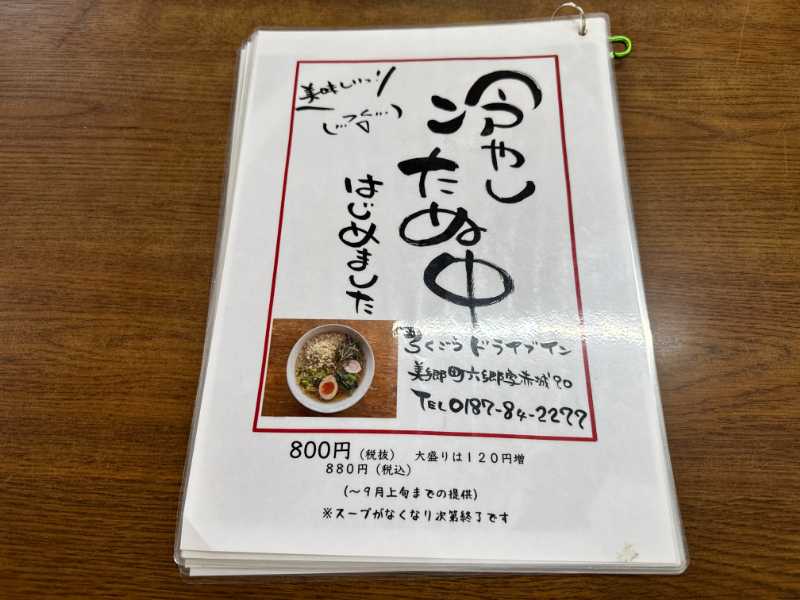 冷やし
たぬ中
はじめました
美味しいっ!
ろくごうドライブイン
美郷町六郷字赤城90
TEL 0187-84-2277
800円（税抜） 大盛りは１２０円増
８８０円（税込）
（～９月上旬までの提供）
※スープがなくなり次第終了です